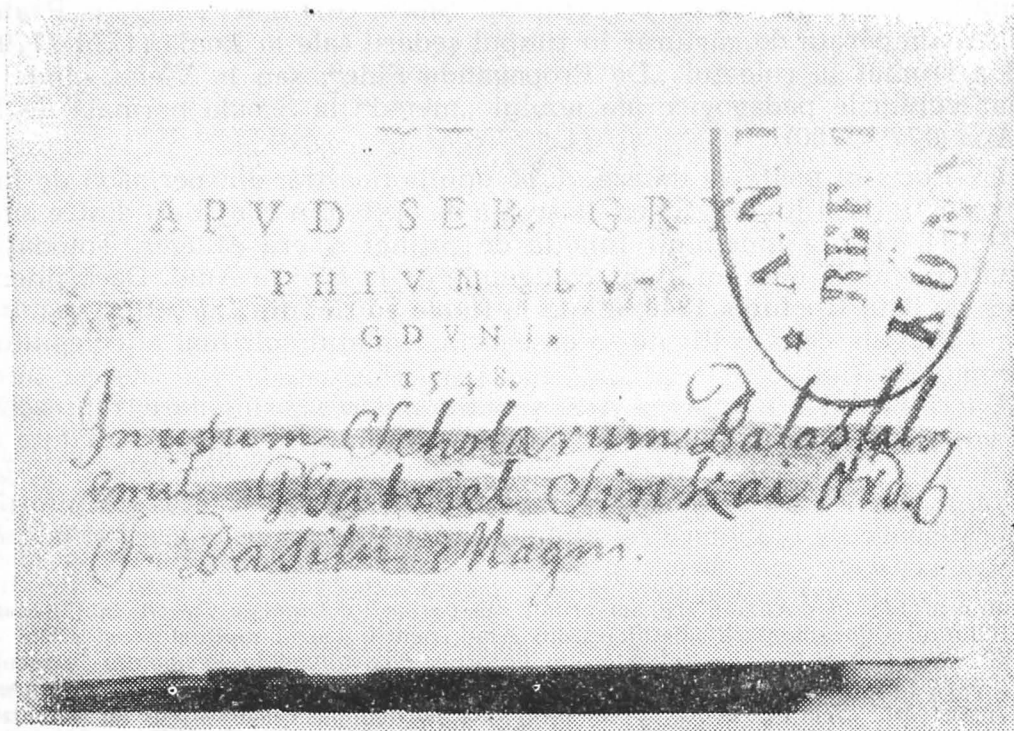 APVD SEB. GRY
PHIVM LV-
GDVNI.
1548.
In usum Scholarum Balasfalv.
emit P Gabriel Sinkai Ord.
S. Basilii Magni.
A.N
REF
KÖN